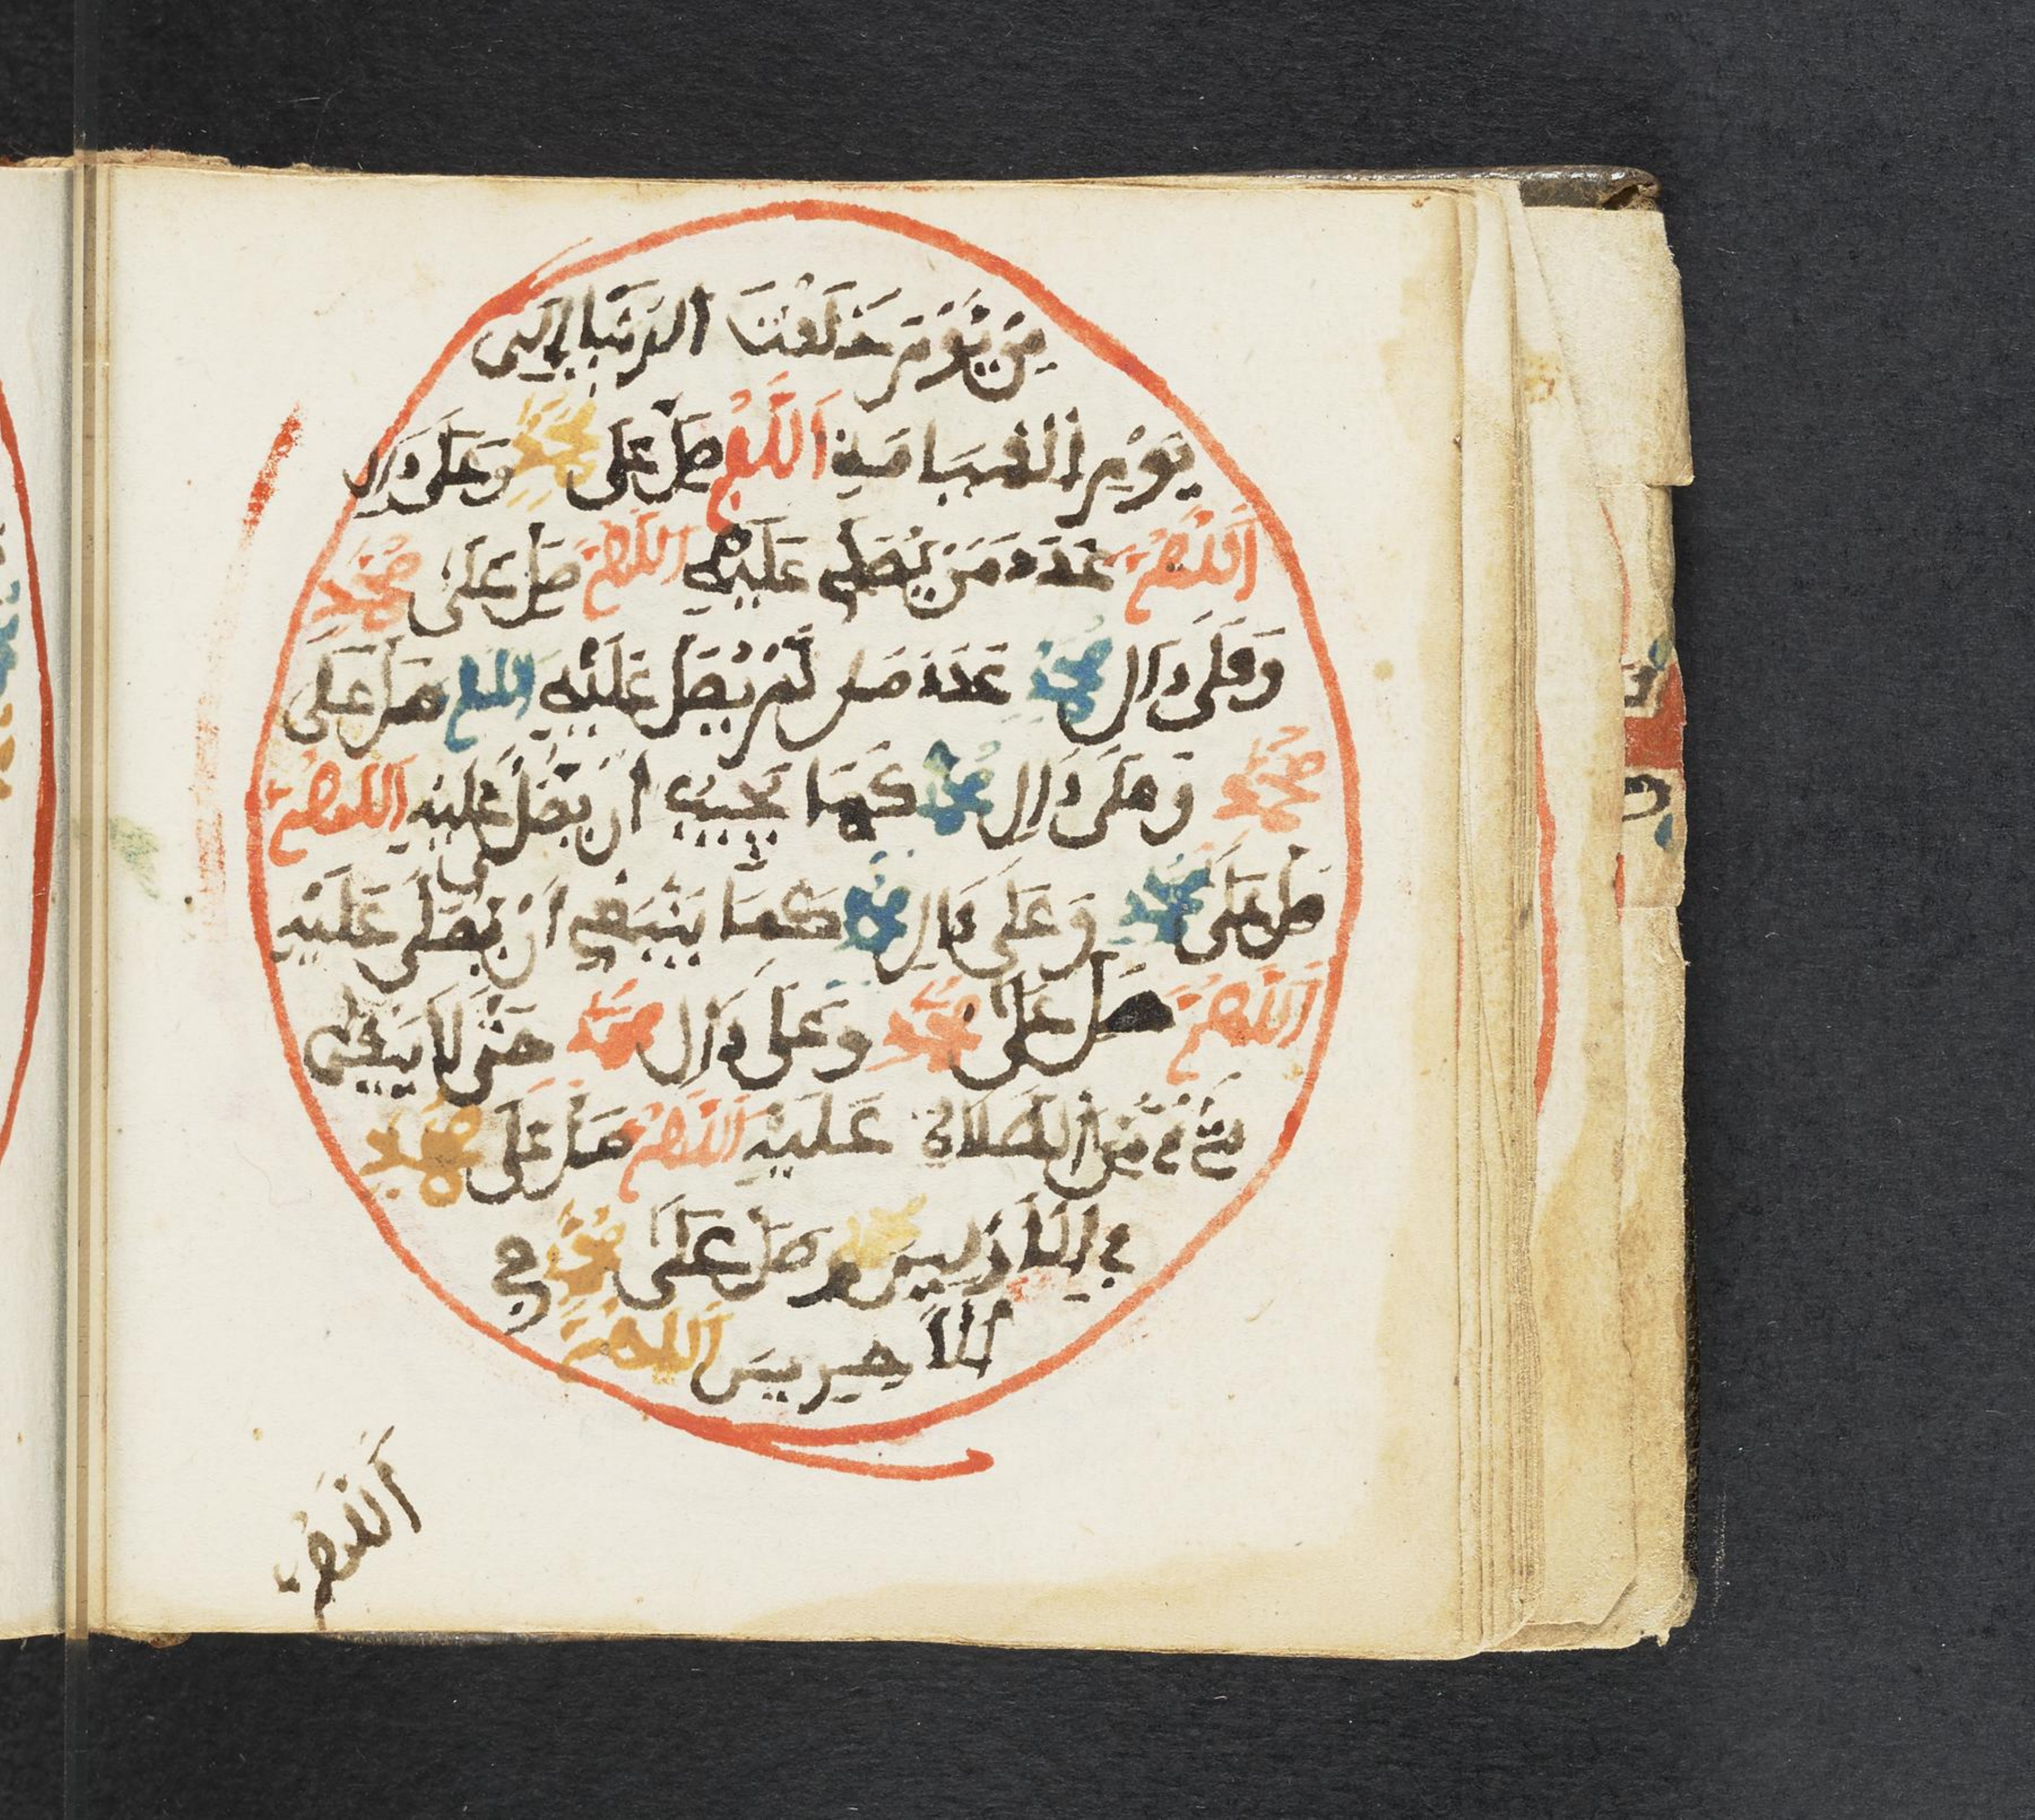 مِن يَوْمَ خَلَقْتَ الدُّنْيَا إِلَى
يَوْمِ الْقِيَامَةِ اَللَّهُمَّ صَلِّ عَلَى مُحَمَّدٍ وَعَلَى ءَالِ
اَللَّهُمَّ عَدَدَ مَنْ يُصَلِّي عَلَيْهِ اَللَّهُمَّ صَلِّ عَلَى مُحَمَّدٍ
وَعَلَى ءَالِ مُحَمَّدٍ عَدَدَ مَن لَّمْ يُصَلِّ عَلَيْهِ اَللَّهُمَّ صَلِّ عَلَى
مُحَمَّدٍ وَعَلَى ءَالِ مُحَمَّدٍ كَمَا يَجِبُ أَنْ يُصَلَّى عَلَيْهِ اَللَّهُمَّ
صَلِّ عَلَى مُحَمَّدٍ وَعَلَى ءَالِ مُحَمَّدٍ كَمَا يَنْبَغِي أَنْ يُصَلَّى عَلَيْهِ
اَللَّهُمَّ صَلِّ عَلَى مُحَمَّدٍ وَعَلَى ءَالِ مُحَمَّدٍ حَتَّى لَا يَبْقَى
شَيْءٌ مِّنَ الصَّلَاةِ عَلَيْهِ اَللَّهُمَّ صَلِّ عَلَى مُحَمَّدٍ
فِي الْأَوَّلِينَ وَصَلِّ عَلَى مُحَمَّدٍ فِي
الْأَخِرِينَ اَللَّهُمَّ
اَللَّهُمَّ